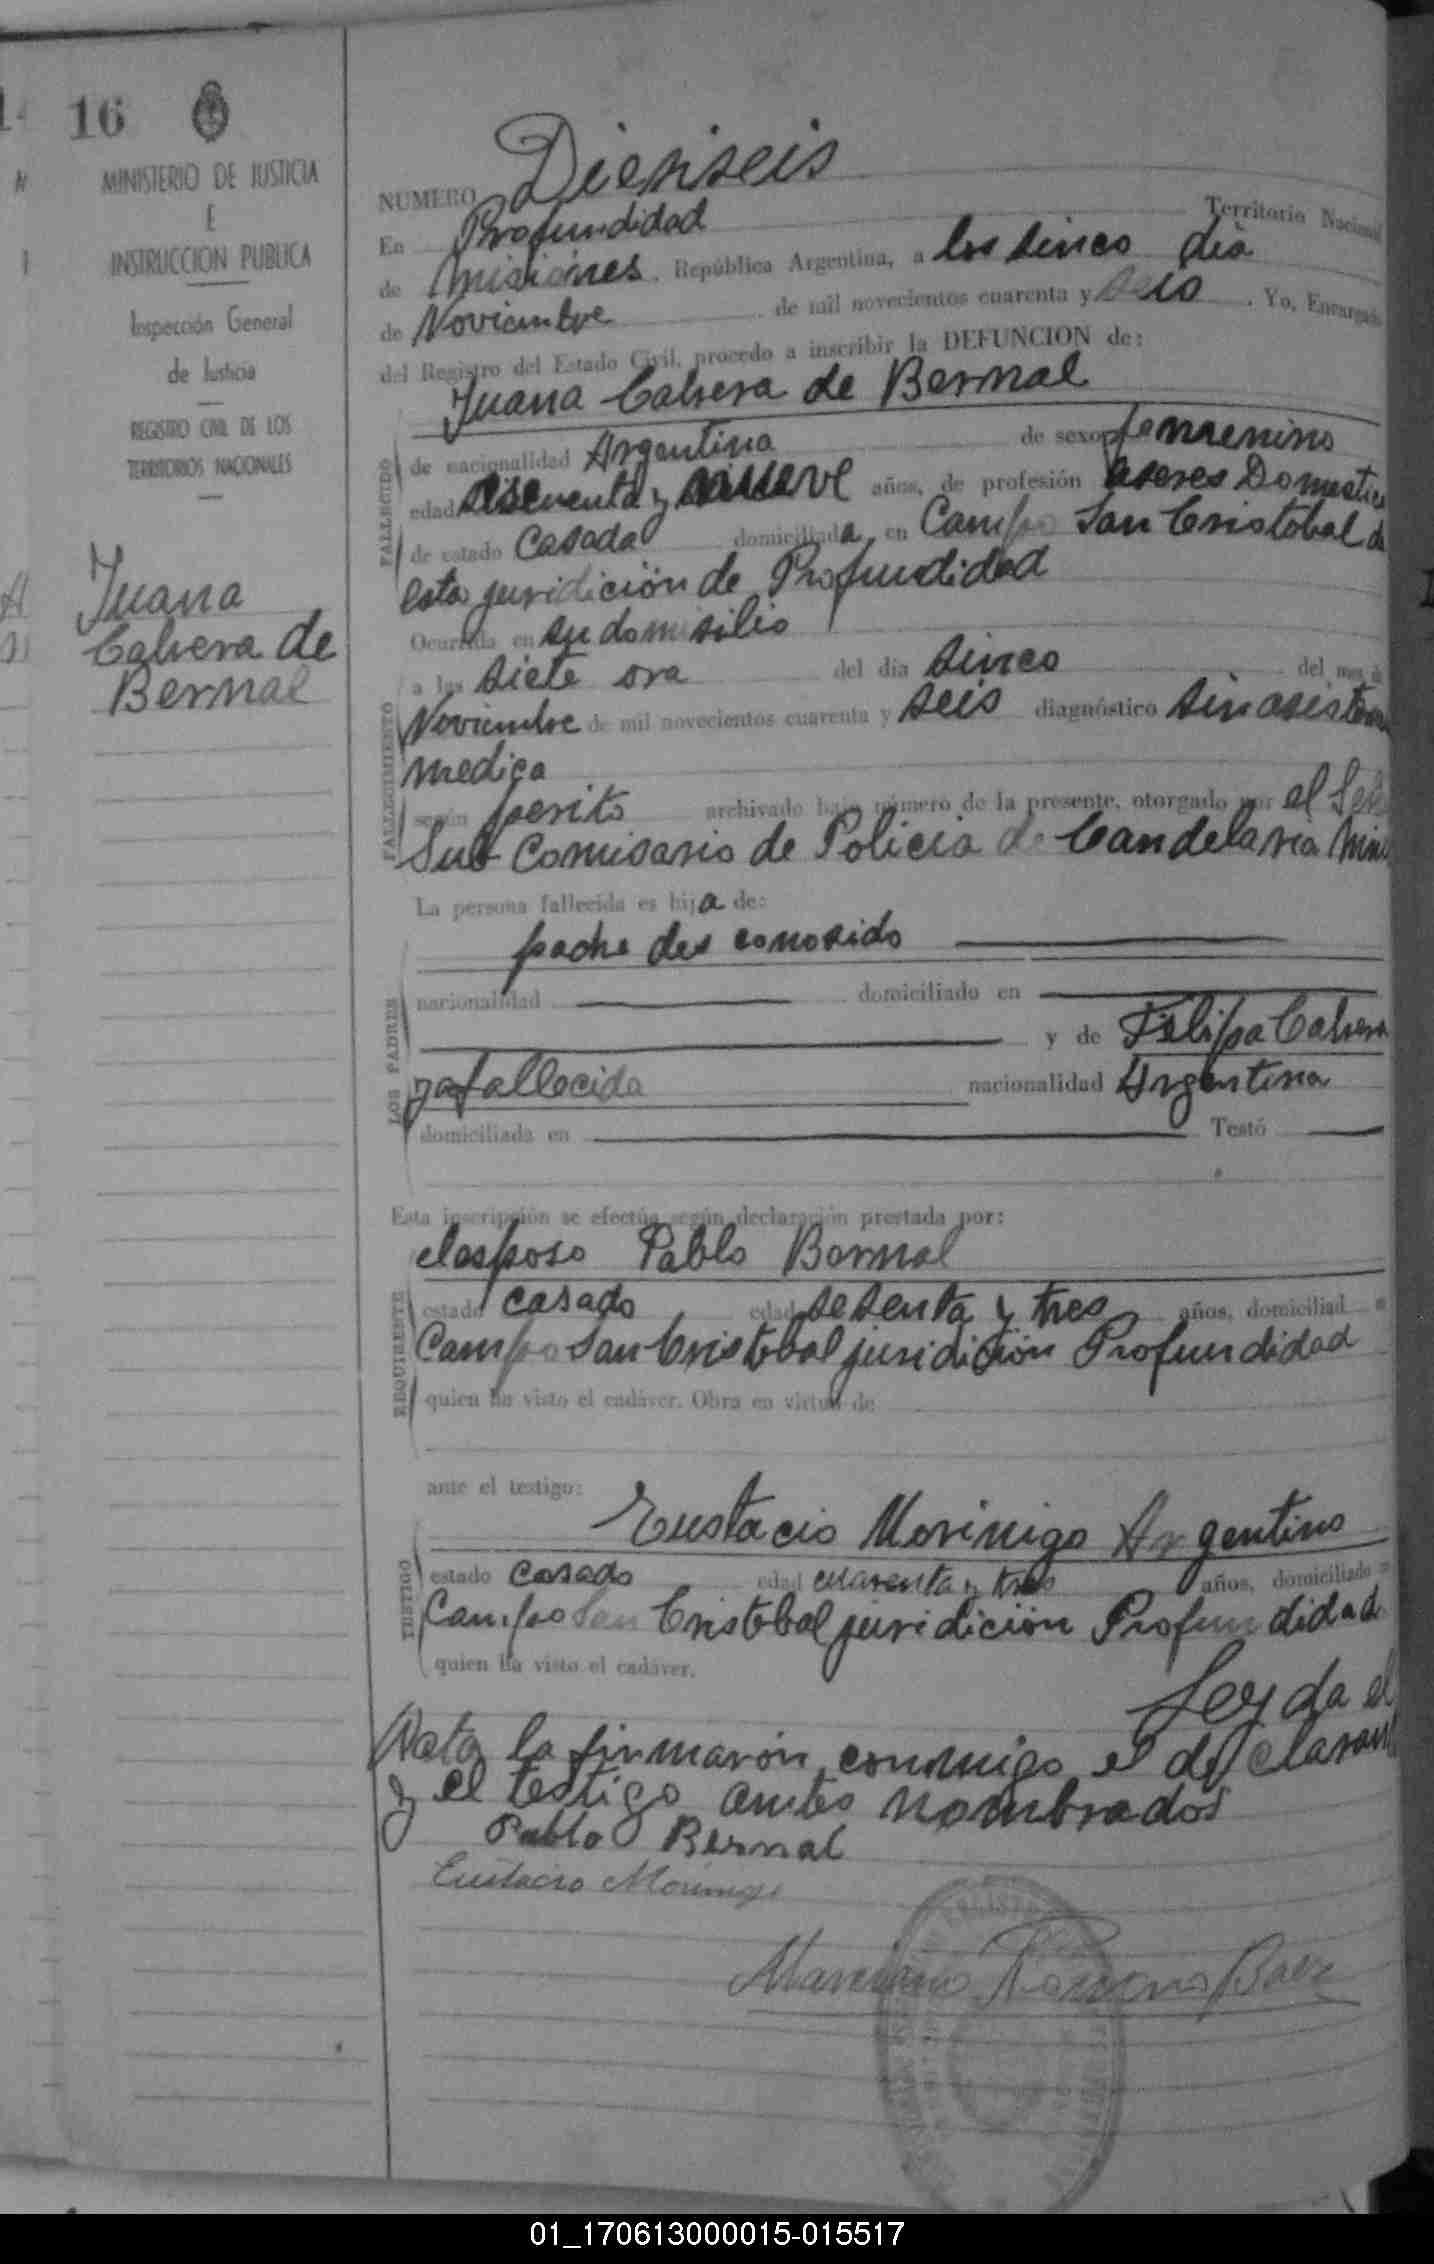 16
MINISTERIO DE JUSTICIA
E
INSTRUCCION PUBLICA
Inspección General
de Justicia
REGISTRO CIVIL DE LOS
TERRITORIOS NACIONALES
Juana
Cabrera de
Bernal
NUMERO Dieniseis
En Profundidad Territorio Nacional
de Misiones. República Argentina, a los sinco dia
de Noviembre de mil novecientos cuarenta y seis. Yo, Encargado
del Registro del Estado Civil, procedo a inscribir la DEFUNCION de:
Juana Cabrera de Bernal
FALLECIDO
de nacionalidad Argentina de sexo femenino
edad y años, de profesión Domestico
de estado Casada domiciliada en Campo San Cristobal de
esta juridición de Profundidad
FALLECIMIENTO
Ocurrida en su domisilio
a las siete ora del día sinco del mes de
Noviembre de mil novecientos cuarenta y seis diagnóstico sin
medica
según perito archivado bajo número de la presente, otorgado por el
Sub Comisario de Policia de Candelaria
La persona fallecida es hija de:
LOS PADRES
padre des conosido
nacionalidad domiciliado en
y de Felipa Cabrera
ya fallecida nacionalidad Argentina
domiciliada en Testó
Esta inscripción se efectúa según declaración prestada por:
REQUIRENTE
el esposo Pablo Bernal
estado casado edad setenta y tres años, domiciliad
Campo San Cristobal juridición Profundidad
quien ha visto el cadáver. Obra en virtud de
ante el testigo:
TESTIGO
Eustacio Morinigo Argentino
estado casado edad cuarenta y tres años, domiciliado
Campo San Cristobal juridición Profundidad
quien ha visto el cadáver.
Leyda el
Acta la firmaron conmigo el declarante
y el testigo antes nombrados
Pablo Bernal
Eustacio Morinigo
01_170613000015-015517